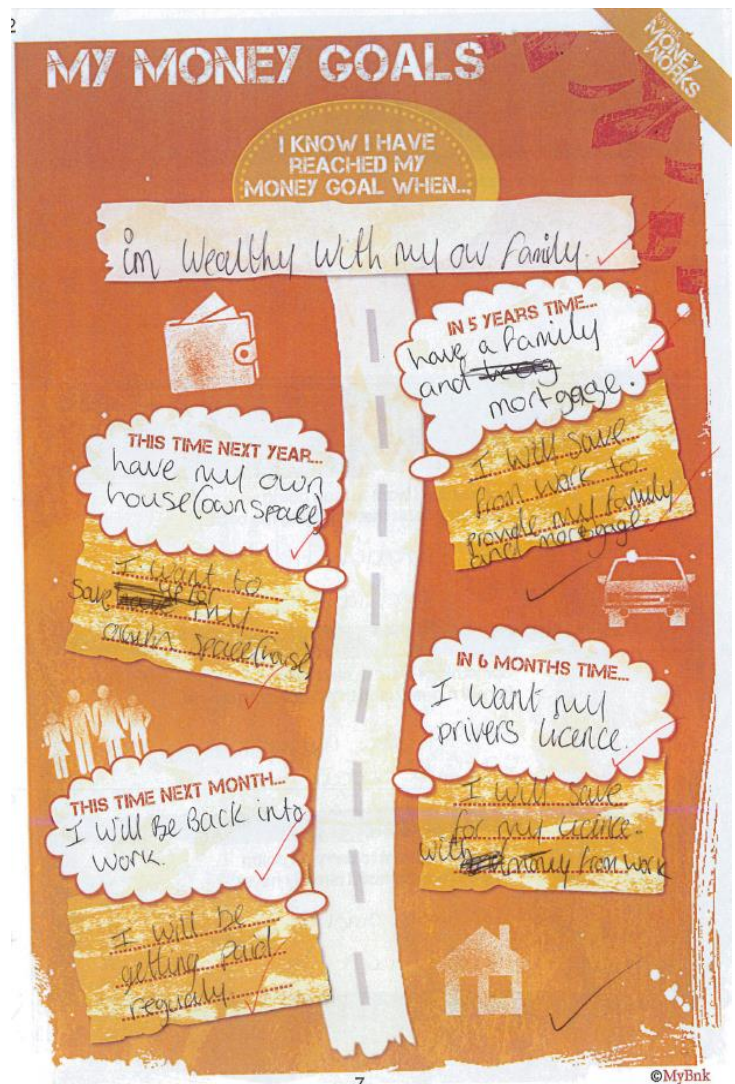 2
MyBnk
MONEY
WORKS
MY MONEY GOALS
I KNOW I HAVE
REACHED MY
MONEY GOAL WHEN...
im wealthy with my ow family.
IN 5 YEARS TIME...
have a family
and
mortgage.
I will save
from work to
provide my family
and mortgage
THIS TIME NEXT YEAR...
have my own
house (own space)
I want to
save for
my
own space (house)
IN 6 MONTHS TIME...
I want my
privers licence.
I will save
for my licence..
with money from work
THIS TIME NEXT MONTH...
I will Be Back into
work.
I will be
getting paid
regularly
7
©MyBnk